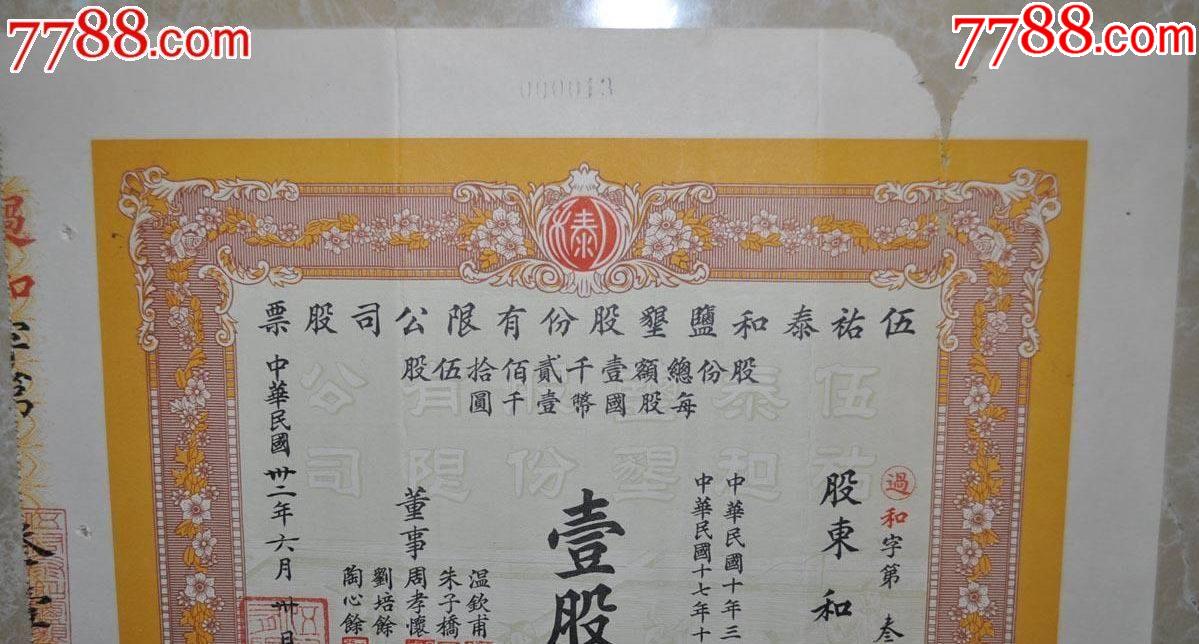 7788.com
7788.com
000013
泰
伍祐泰和鹽墾股份有限公司股票
股份總額壹千貳佰拾伍股
每股國幣壹千圓
伍祐泰和鹽墾股份有限公司
過和字第叁
股東和
中華民國十年三
中華民國十七年十
壹股
董事
温欽甫
朱子橋
周孝懷
劉培餘
陶心餘
中華民國卅二年六月卅日
過和字第